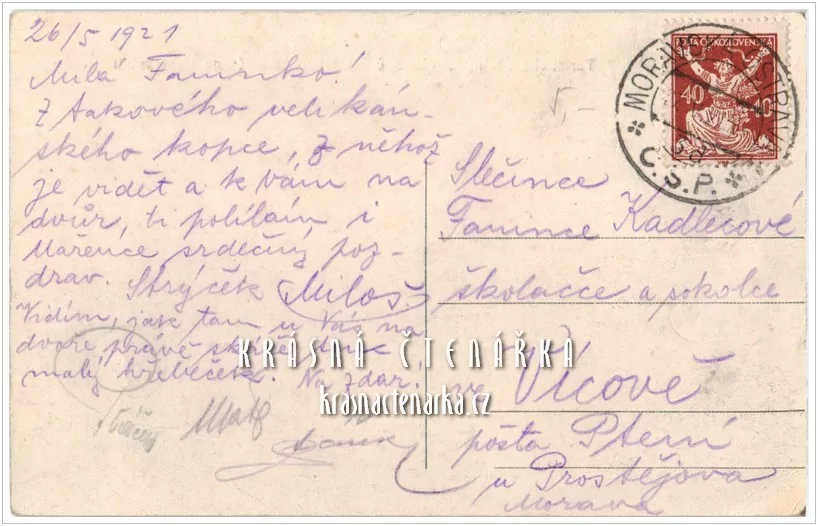 26/5 1921
Milá Faninko!
Z takového velikán-
ského kopce, z něhož
je vidět a k vám na
dvůr, ti posílám i
Mařence srdečný poz-
drav. Strýček Miloš
Vidím, jak tam u Vás na
dvoře právě skáče
malý hřebeček. Na zdar.
5,-
POŠTA ČESKOSLOVENSKÁ
40 40
MORAVSKÁ OSTRAVA
Č.S.P.
Slečince
Fanince Kadlecové
školačce a sokolce
ve Vícově
pošta Ptení
u Prostějova
Morava
KRÁSNÁ ČTENÁŘKA
krasnactenarka.cz